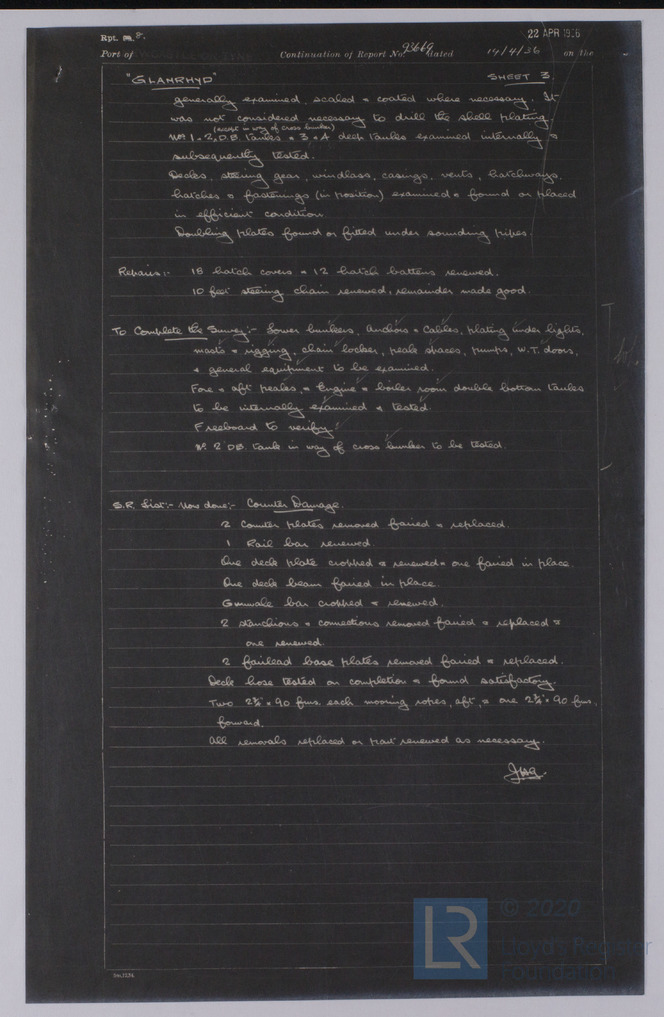 Rpt. 8.
22 APR 1936
Port of NEWCASTLE-ON-TYNE Continuation of Report No. 93669 dated 14/4/36 on the
"GLANRHYD" SHEET 3
generally examined, scaled & coated where necessary. It
was not considered necessary to drill the shell plating.
(except in way of cross bunker)
Nos 1 & 2, D.B. tanks & 3 & 4 deep tanks examined internally &
subsequently tested.
Decks, steering gear, windlass, casings, vents, hatchways,
hatches & fastenings (in position) examined & found or placed
in efficient condition
Doubling plates found or fitted under sounding pipes.
Repairs:- 18 hatch covers & 12 hatch battens renewed.
10 feet steering chain renewed, remainder made good.
To Complete the Survey:- Lower bunkers, Anchors & Cables, plating under lights,
masts & rigging, chain locker, peak spaces, pumps, W.T. doors,
& general equipment to be examined.
Fore & aft peaks, & Engine & boiler room double bottom tanks
to be internally examined & tested.
Freeboard to verify.
No 2 DB. tank in way of cross bunker to be tested.
S.R. List:- Now done:- Counter Damage.
2 Counter plates removed faired & replaced.
1 Rail bar renewed
One deck plate cropped & renewed & one faired in place.
One deck beam faired in place.
Gunwale bar cropped & renewed.
2 stanchions & connections removed faired & replaced &
one renewed.
2 fairlead base plates removed faired & replaced.
Deck hose tested on completion & found satisfactory.
Two 2¾" × 90 fms. each mooring ropes, aft, & one 2¾" × 90 fms.
forward.
All removals replaced or part renewed as necessary.
© 2020
LR
Lloyd's Register
Foundation